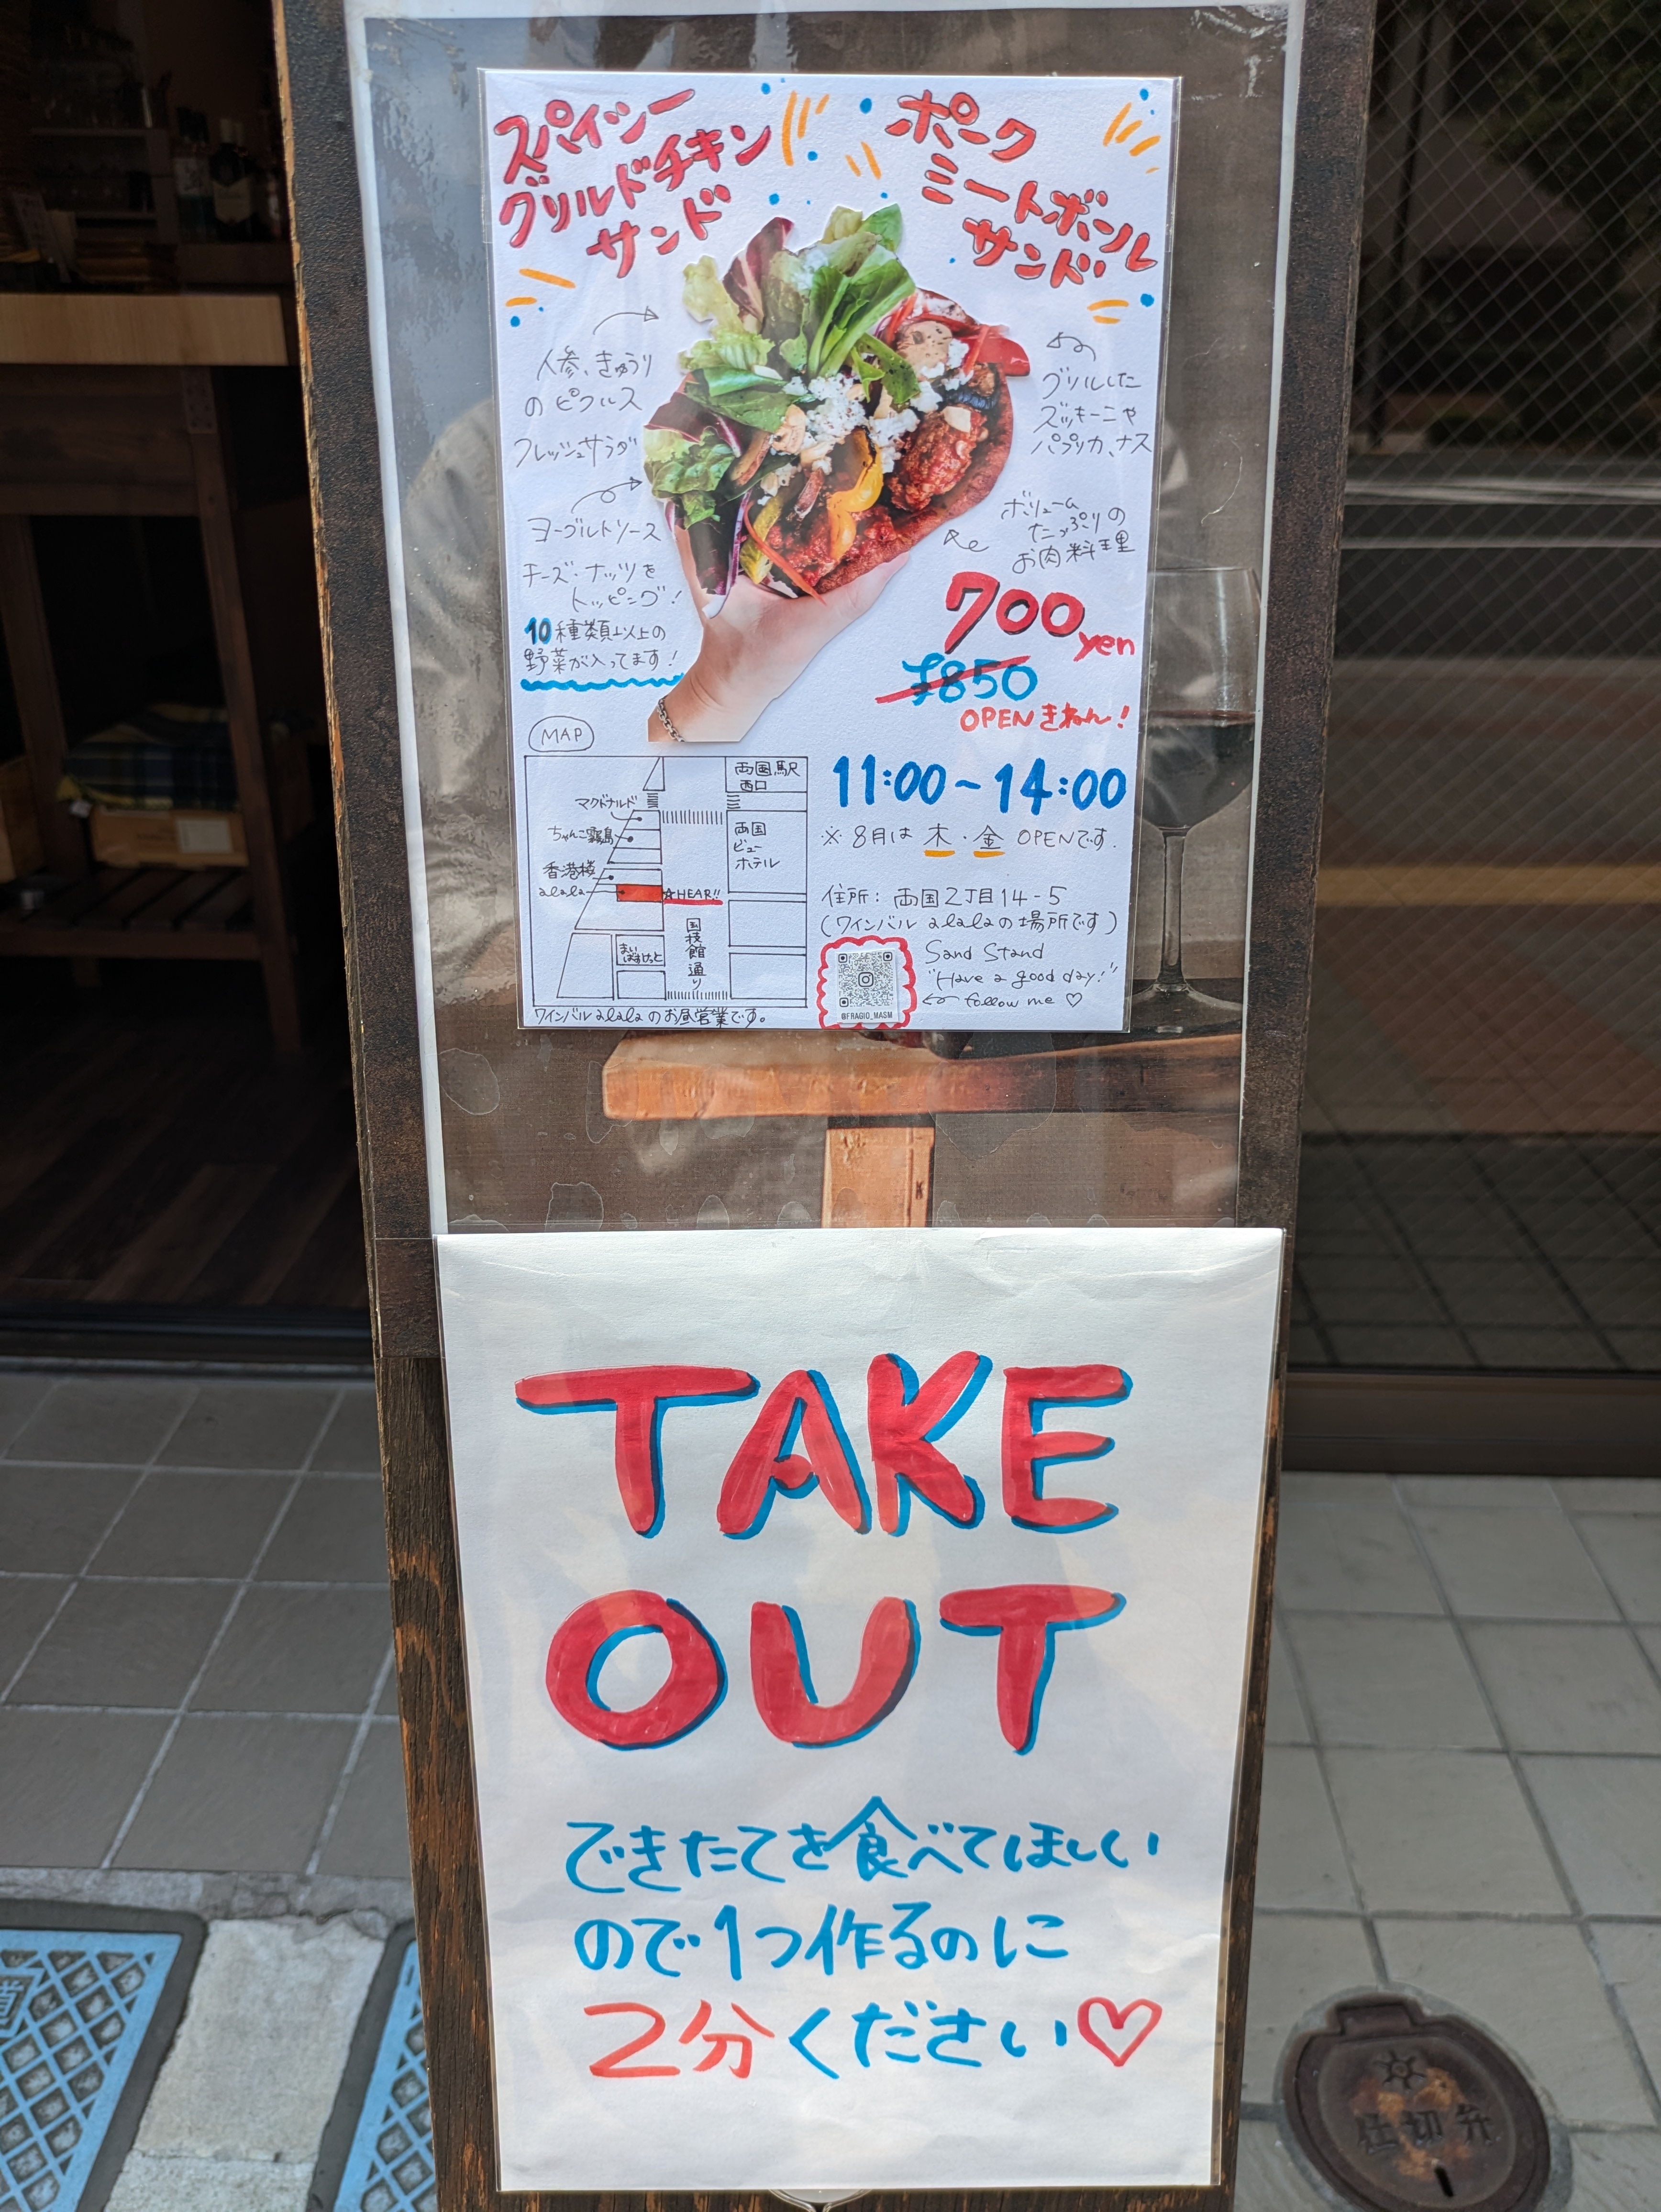 スパイシー
グリルドチキン
サンド
ポーク
ミートボール
サンド
人参、きゅうり
のピクルス
フレッシュサラダ
ヨーグルトソース
チーズ・ナッツを
トッピング!
10種類以上の
野菜が入ってます!
グリルした
ズッキーニや
パプリカ、ナス
ボリューム
たっぷりの
お肉料理
700yen
¥850
OPENきねん!
MAP
両国駅
西口
マクドナルド
ちゃんこ霧島
両国
ビュー
ホテル
香港楼
alala
☆HEAR!!
国技館通り
まい
ばすけっと
ワインバルalalaのお昼営業です。
11:00~14:00
※8月は木・金OPENです.
住所:両国2丁目14-5
(ワインバルalalaの場所です)
Sand Stand
"Have a good day!"
follow me ♡
@FRAGIO_MASM
TAKE
OUT
できたてを食べてほしい
ので1つ作るのに
2分ください♡
仕切弁